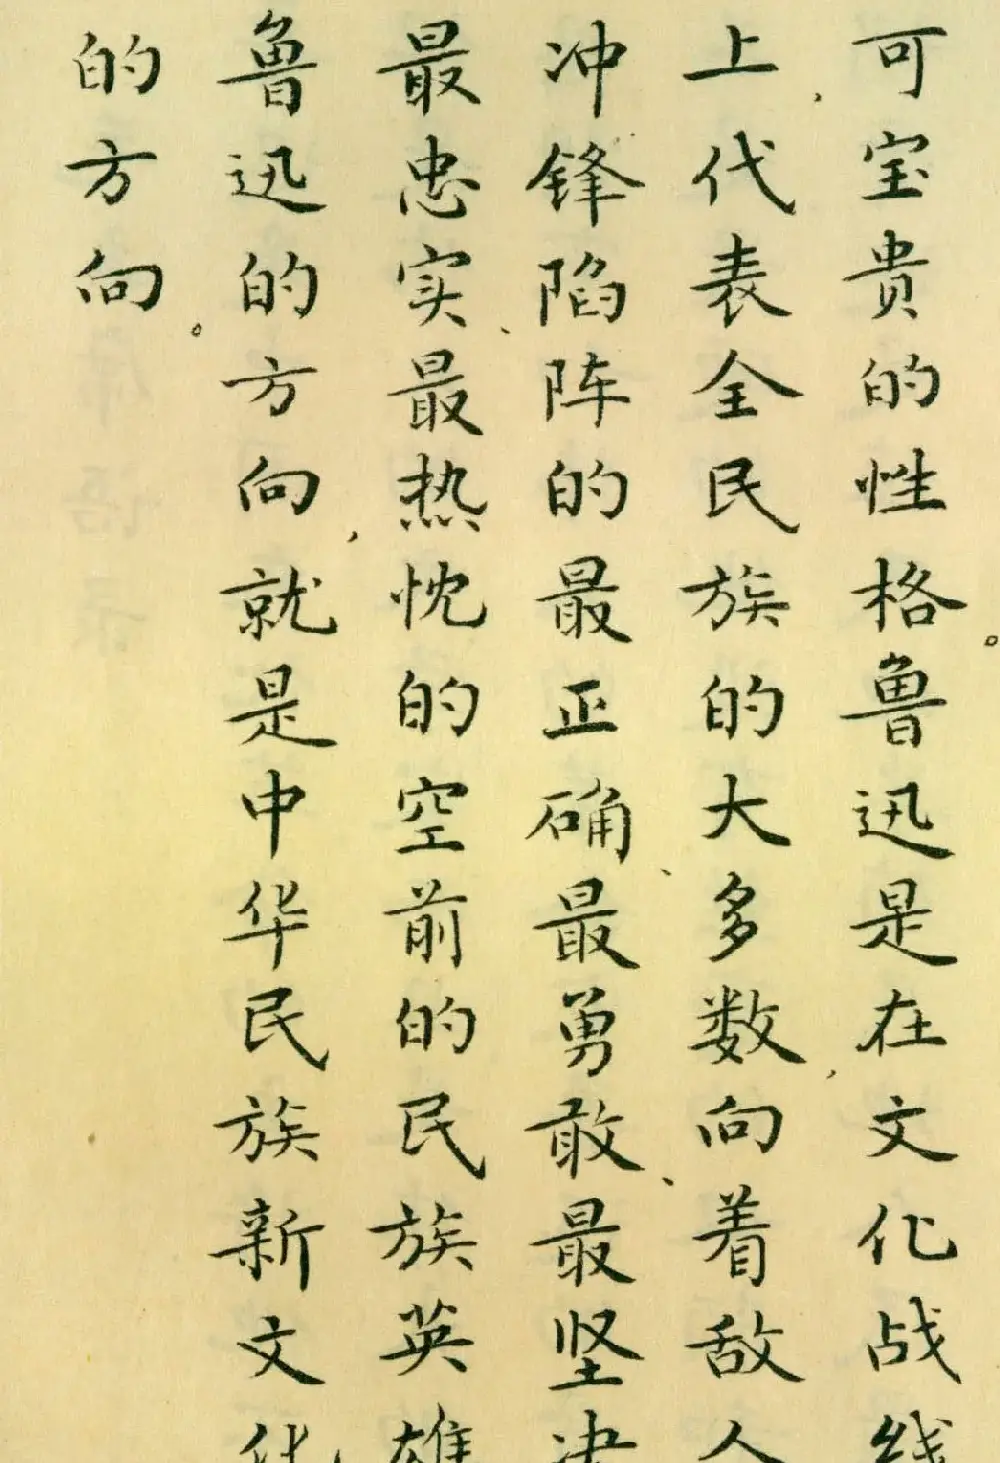 可宝贵的性格。鲁迅是在文化战线
上，代表全民族的大多数，向着敌人
冲锋陷阵的最正确、最勇敢、最坚决
最忠实、最热忱的空前的民族英雄
鲁迅的方向，就是中华民族新文化
的方向。